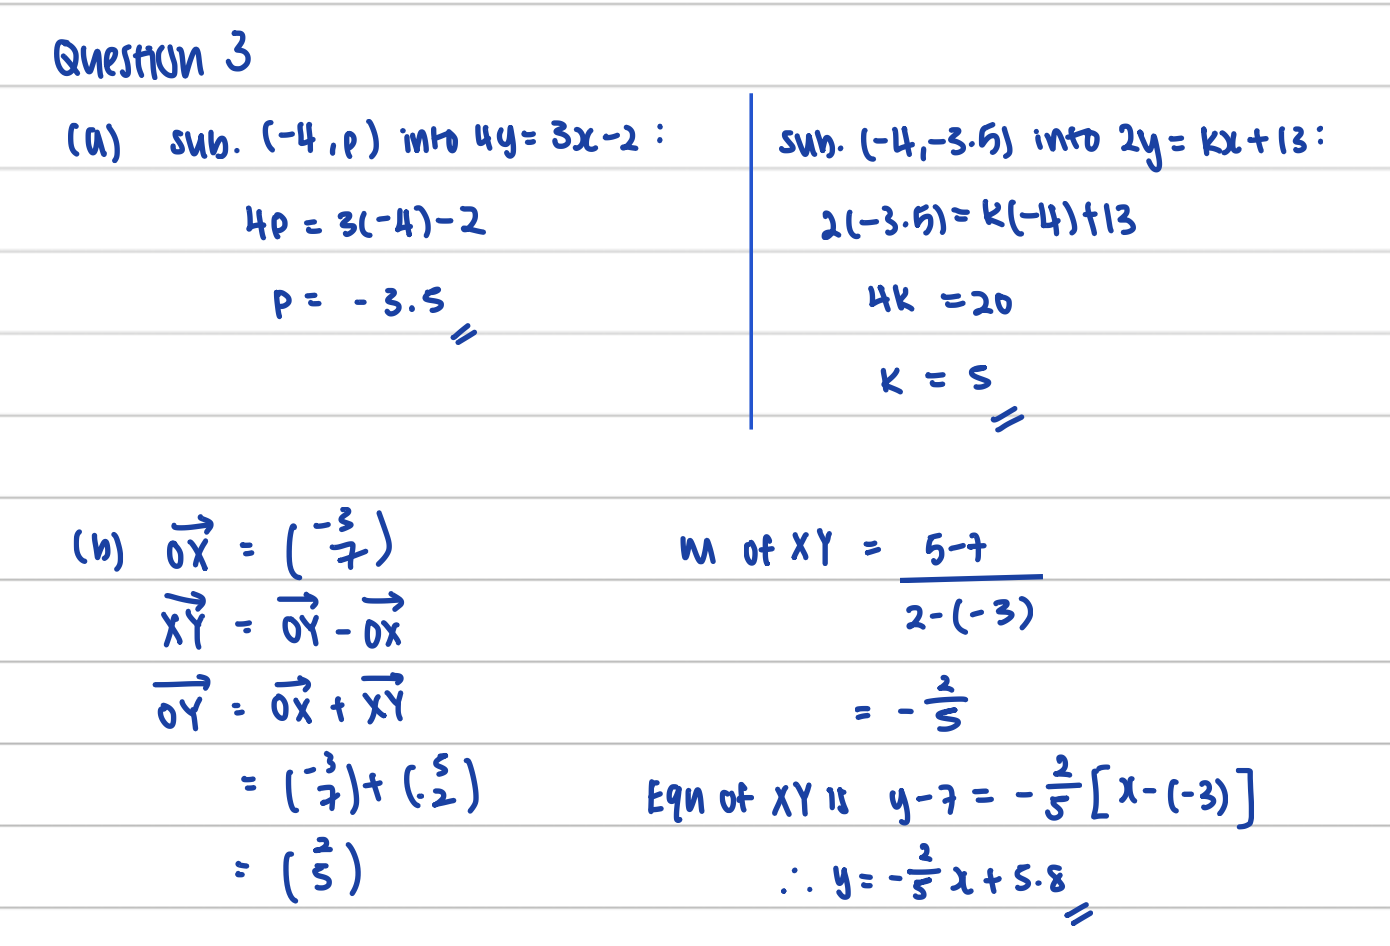 Question 3
(a) sub. (-4, p) into 4y = 3x - 2 :
4p = 3(-4) - 2
p = -3.5
sub. (-4, -3.5) into 2y = kx + 13 :
2(-3.5) = k(-4) + 13
4k = 20
k = 5
(b) \overrightarrow{OX} = \begin{pmatrix} -3 \\ 7 \end{pmatrix}
\overrightarrow{XY} = \overrightarrow{OY} - \overrightarrow{OX}
\overrightarrow{OY} = \overrightarrow{OX} + \overrightarrow{XY}
= \begin{pmatrix} -3 \\ 7 \end{pmatrix} + \begin{pmatrix} 5 \\ -2 \end{pmatrix}
= \begin{pmatrix} 2 \\ 5 \end{pmatrix}
m of XY = \frac{5-7}{2-(-3)}
= -\frac{2}{5}
Eqn of XY is y - 7 = -\frac{2}{5} [x - (-3)]
∴ y = -\frac{2}{5} x + 5.8